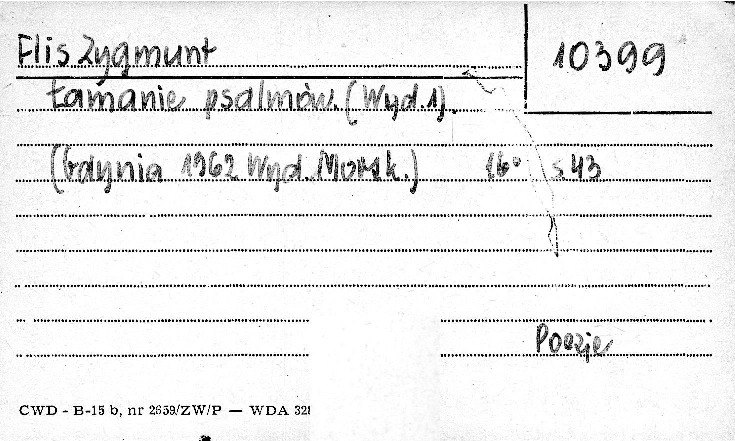 Flis Zygmunt
10399
Łamanie psalmów. (Wyd. 1).
(Gdynia 1962 Wyd. Morsk.) 16° s. 43
Poezje
CWD - B-15 b, nr 2659/ZW/P — WDA 328